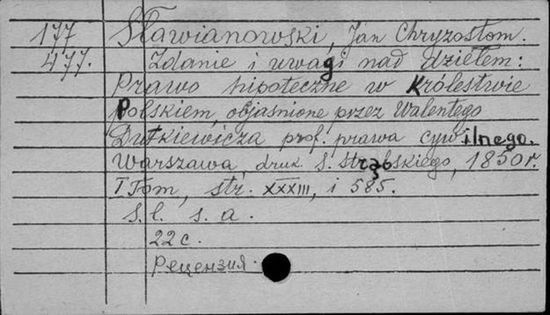 177 Sławianowski, Jan Chryzostom.
477. Zdanie i uwagi nad dziełem:
Prawo hipoteczne w Królestwie
Polskiem, objaśnione przez Walentego
Dutkiewicza prof. prawa cywilnego.
Warszawa, druk S. Strąbskiego, 1850 r.
I Tom, str. XXXIII, i 585.
S. l. s. a.
22 c.
Рецензия.